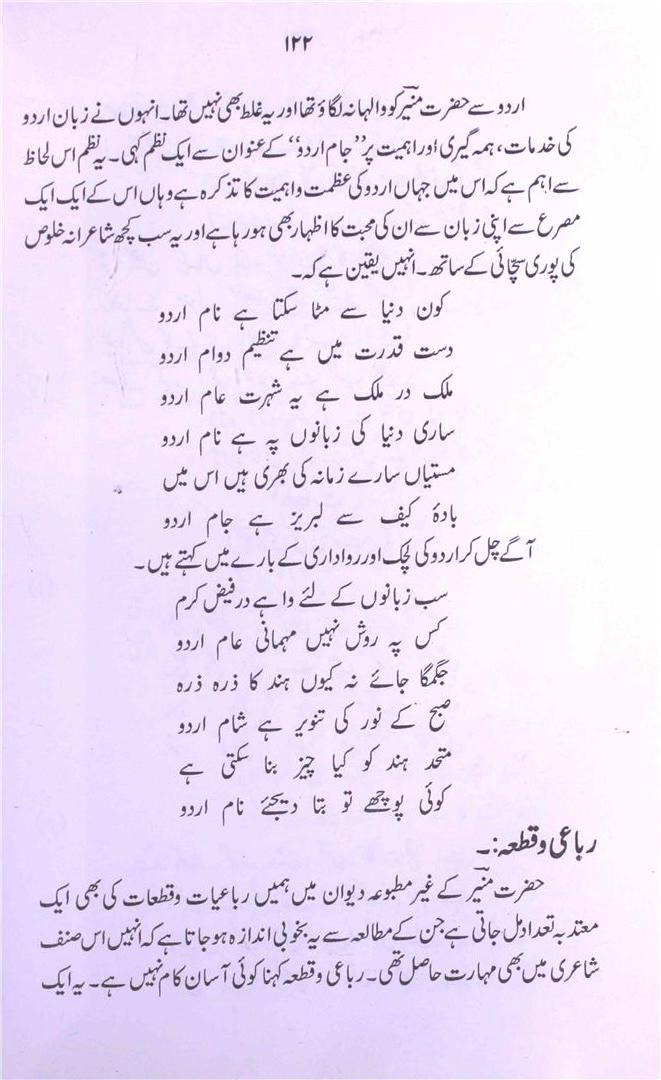 ۱۲۲
اردو سے حضرت منیرؔ کو والہانہ لگاؤ تھا اور یہ غلط بھی نہیں تھا۔ انہوں نے زبان اردو
کی خدمات، ہمہ گیری اور اہمیت پر ’’جام اردو‘‘ کے عنوان سے ایک نظم کہی۔ یہ نظم اس لحاظ
سے اہم ہے کہ اس میں جہاں اردو کی عظمت و اہمیت کا تذکرہ ہے وہاں اس کے ایک ایک
مصرع سے اپنی زبان سے ان کی محبت کا اظہار بھی ہو رہا ہے اور یہ سب کچھ شاعرانہ خلوص
کی پوری سچّائی کے ساتھ۔ انہیں یقین ہے کہ۔
کون دنیا سے مٹا سکتا ہے نام اردو
دست قدرت میں ہے تنظیم دوام اردو
ملک در ملک ہے یہ شہرت عام اردو
ساری دنیا کی زبانوں پہ ہے نام اردو
مستیاں سارے زمانہ کی بھری ہیں اس میں
بادۂ کیف سے لبریز ہے جام اردو
آگے چل کر اردو کی لچک اور رواداری کے بارے میں کہتے ہیں۔
سب زبانوں کے لئے وا ہے در فیض کرم
کس پہ روش نہیں مہمانی عام اردو
جگمگا جائے نہ کیوں ہند کا ذرہ ذرہ
صبح کے نور کی تنویر ہے شام اردو
متحد ہند کو کیا چیز بنا سکتی ہے
کوئی پوچھے تو بتا دیجئے نام اردو
رباعی و قطعہ:۔
حضرت منیرؔ کے غیر مطبوعہ دیوان میں ہمیں رباعیات و قطعات کی بھی ایک
معتدبہ تعداد مل جاتی ہے جن کے مطالعہ سے یہ بخوبی اندازہ ہو جاتا ہے کہ انہیں اس صنف
شاعری میں بھی مہارت حاصل تھی۔ رباعی و قطعہ کہنا کوئی آسان کام نہیں ہے۔ یہ ایک